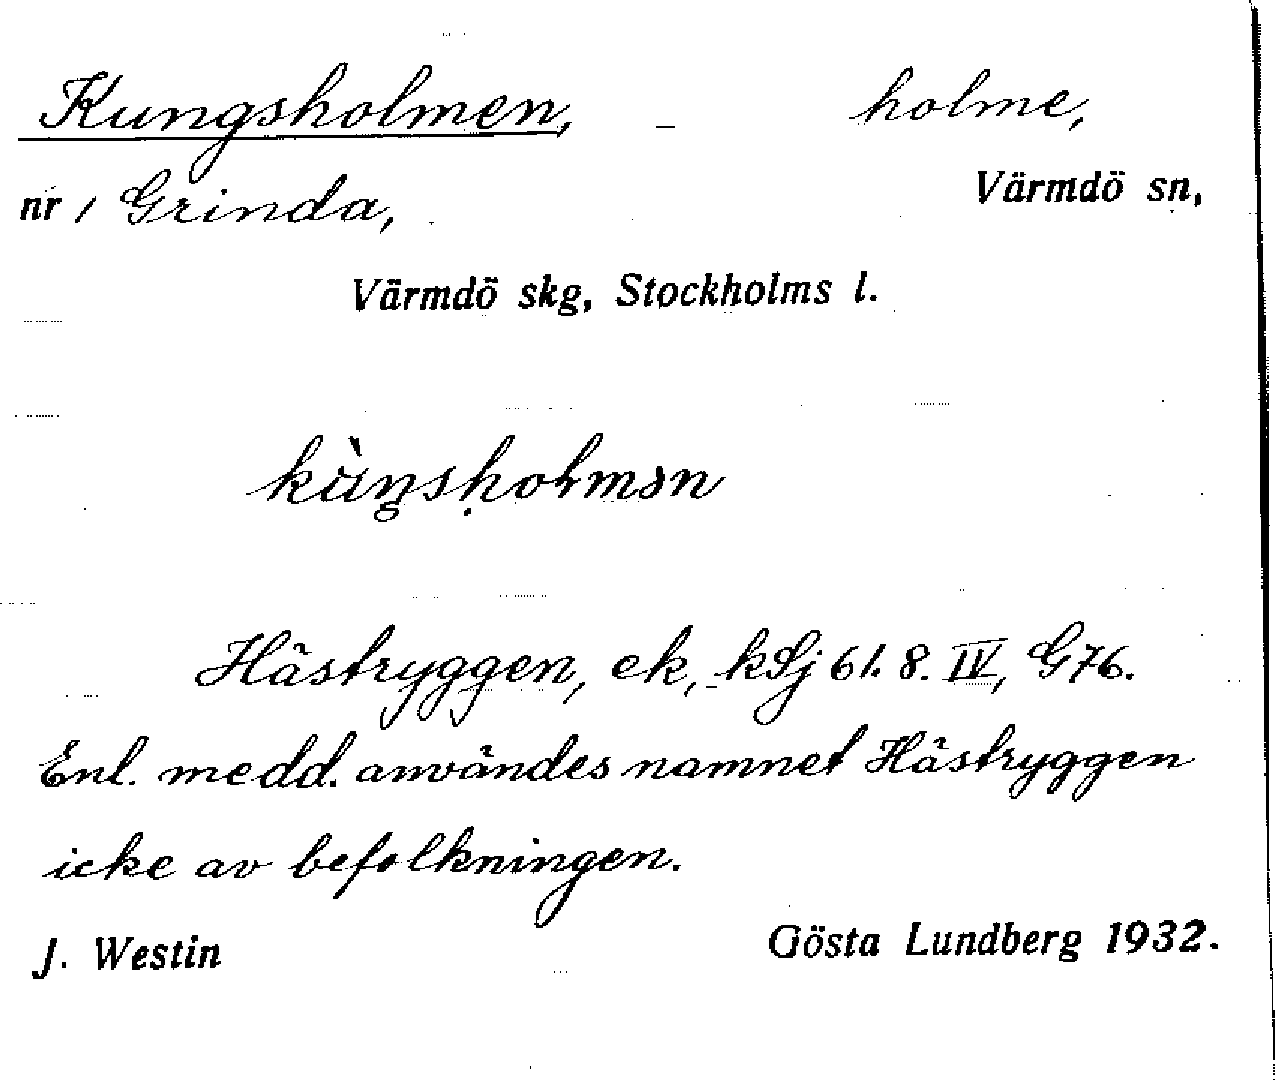 Kungsholmen, – holme,
nr 1 Grinda, Värmdö sn,
Värmdö skg, Stockholms l.
kùŋsholmən
Hästryggen, ek, kSj 61. 8. IV, G76.
Enl. medd. användes namnet Hästryggen
icke av befolkningen.
J. Westin Gösta Lundberg 1932.